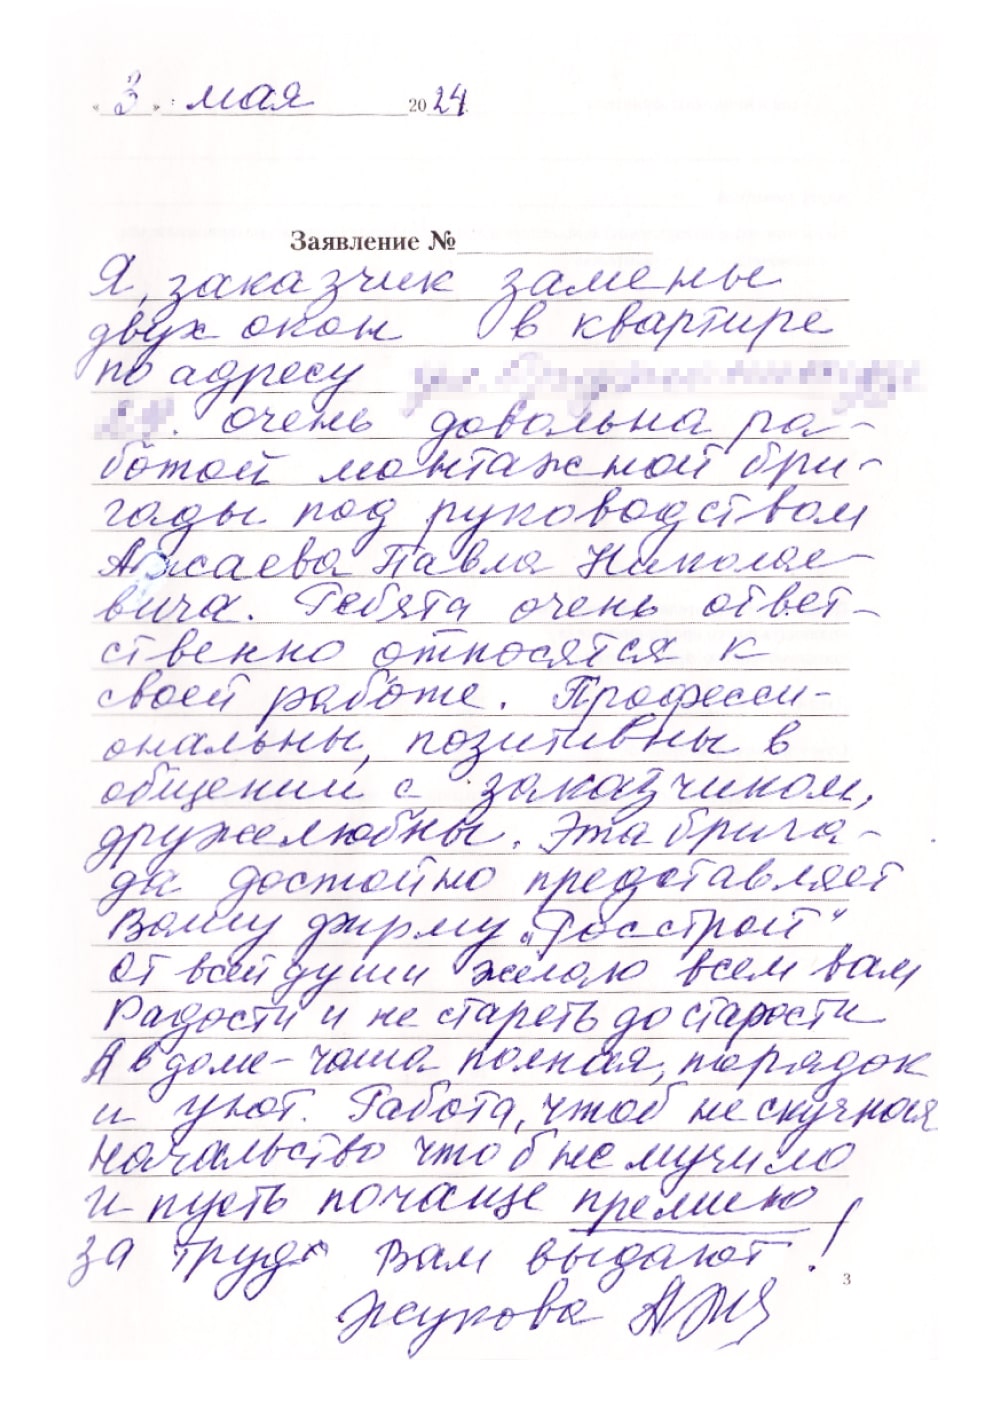 « 3 » мая 2024
Заявление №
Я, заказчик замены
двух окон в квартире
по адресу
очень довольна ра-
ботой монтажной бри-
гады под руководством
Павла Николае-
вича. Ребята очень ответ-
ственно относятся к
своей работе. Професси-
ональны, позитивны в
общении с заказчиком,
дружелюбны. Эта брига-
да достойно представляет
Вашу фирму „Росстрой“
От всей души желаю всем вам
Радости и не стареть до старости
А в доме - чаша полная, порядок
и уют. Работа, чтоб не скучная
Начальство чтоб не мучило
И пусть почаще премию
за труд Вам выдают!
3
Жукова